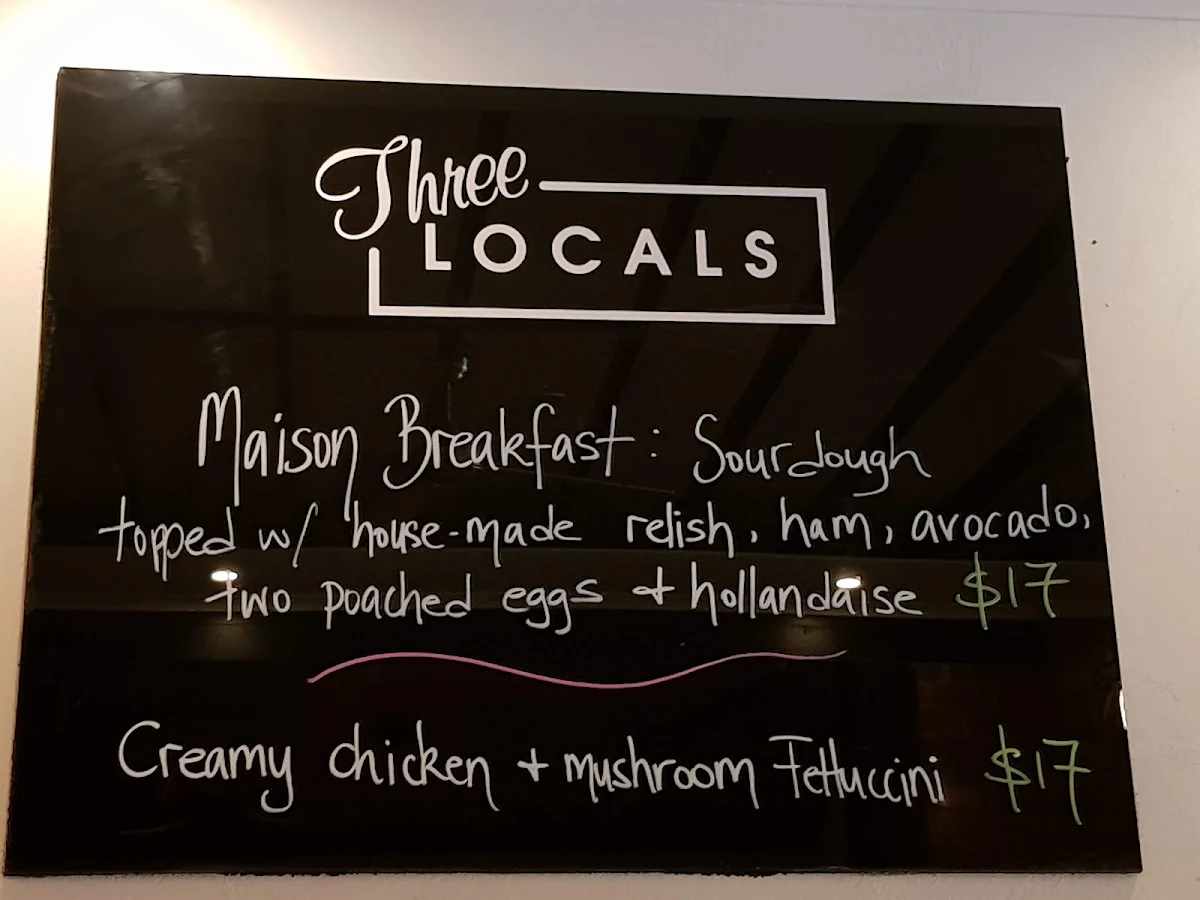 Three
LOCALS
Maison Breakfast: Sourdough
topped w/ house-made relish, ham, avocado,
two poached eggs + hollandaise $17
Creamy chicken + mushroom Fettuccini $17